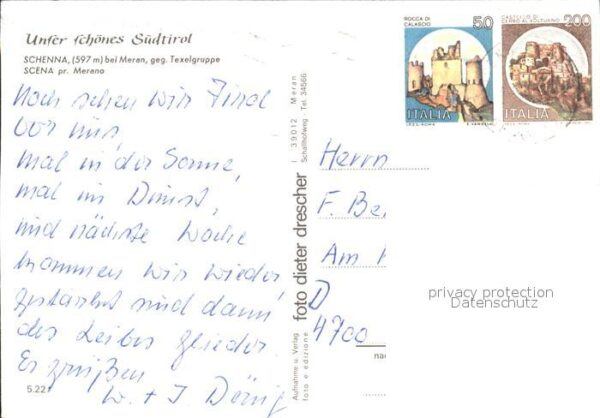 Unser schönes Südtirol
SCHENNA, (597 m) bei Meran, geg. Texelgruppe
SCENA pr. Merano
Noch sehen wir Tirol
vor uns,
mal in der Sonne,
mal im Dunst,
und nächste Woche
kommen wir wieder,
gestärkt sind dann
des Leibes Glieder.
Es grüßen
W. + I
5.22
Aufnahme u. Verlag
foto e edizione
foto dieter drescher
I 39012 Meran
Schallhofweg · Tel. 34566
ROCCA DI
CALASCIO
50
ITALIA
CASTELLO DI
CERRO AL VOLTURNO
200
ITALIA
Herrn
F. Be
Am
D
4700
privacy protection
Datenschutz